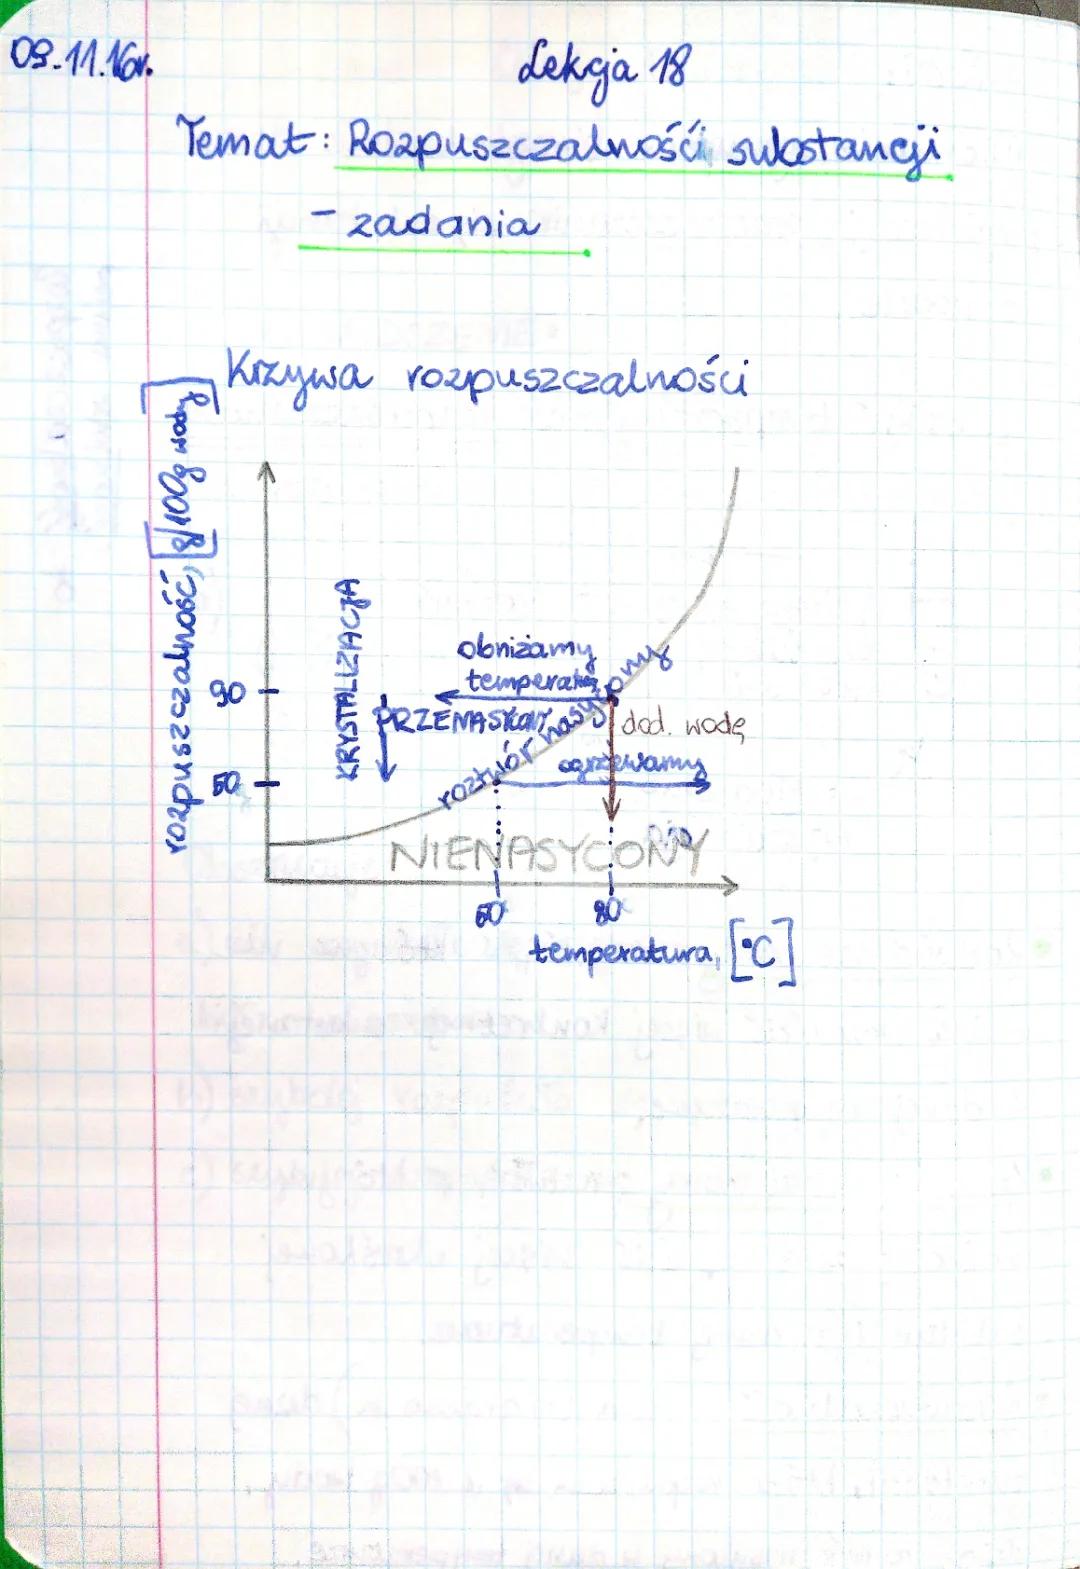 09.11.16r.
Lekcja 18
Temat: Rozpuszczalności substancji
- zadania
Krzywa rozpuszczalności
rozpuszczalność, [g/100g wody]
KRYSTALIZACJA
obniżamy
temperaturę
90
PRZENASYCONY
roztwór nasycony
dod. wodę
ogrzewamy
50
NIENASYCONY
60
80
temperatura, [°C]